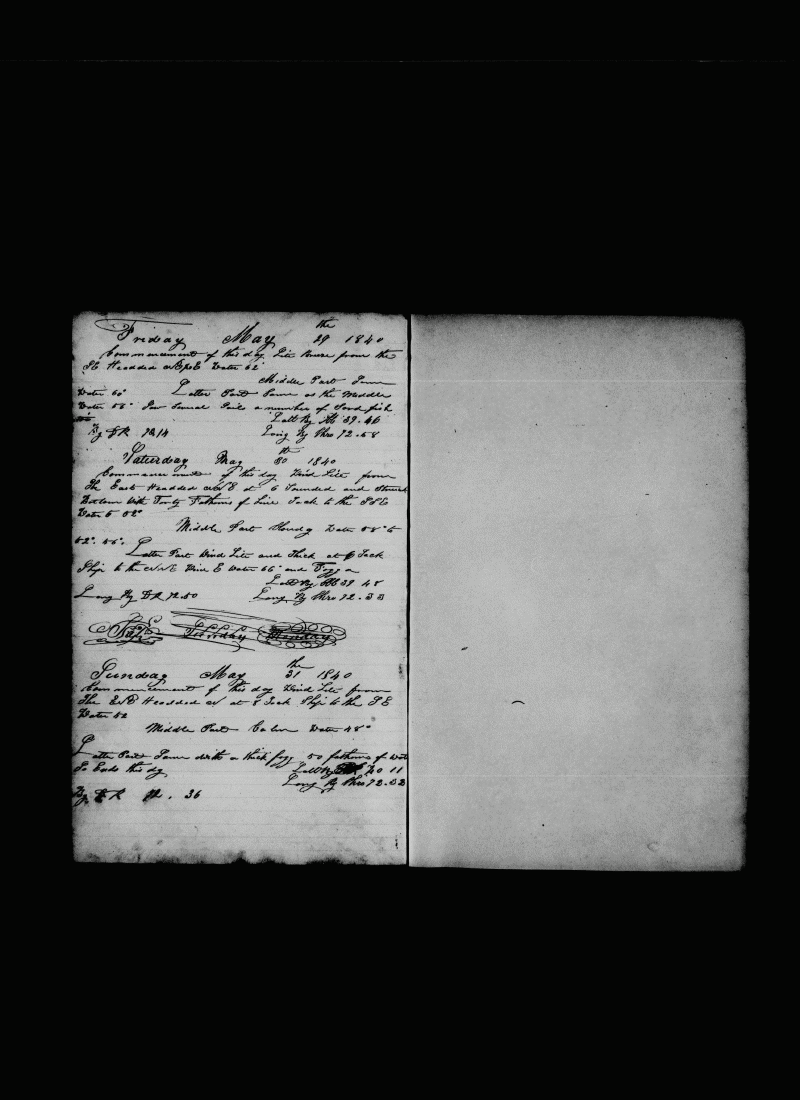 the
Friday May 29 1840
Commencement of this day Lite Breze from the
SE Headded Water 62°
Middle Part Same
Water 60° Latter Part Same as the Middle
Water 58° Saw Several Sails a number of Sord fish
Latt By 39.46
By DR 72.14 Long By Chro 72.58
th
Saturday May 30 1840
Commencement of this day Wind Lite from
The East Headded at 6 Sounded and Struck
Bottom with Forty Fathoms of Line Tack to the SSE
Water 52°
Middle Part Water
52°
Latter Part Wind Lite and Thick at 6 Tack
Ship to the NNE Wind E Water and Foggy
Latt By 39 48
Long By DR 72.50 Long By Chro 72.53
Monday
the
Sunday May 31 1840
Commencement of this day Wind Lite from
The Headded at 8 Tack Ship to the SE
Water 52
Middle Part Calm Water 48°
Latter Part Same with a thick fogg 50 fathoms of Wat
So Ends this day Latt By 40 11
Long By Chro 72.52
By DR 72.36